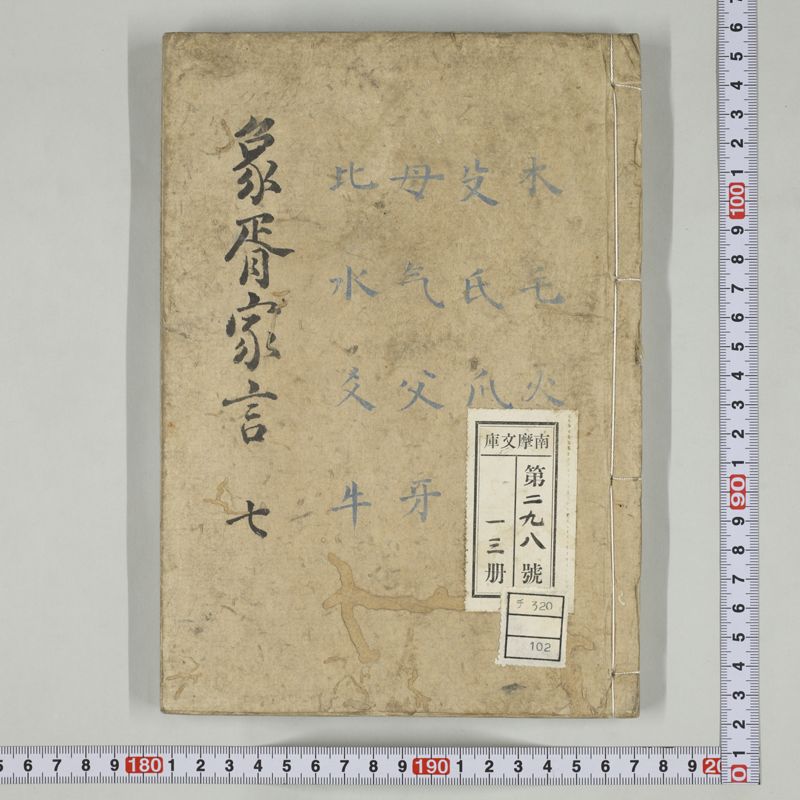 象胥家言 七
木殳母比
毛氏气水
火爪父爻
牙牛
南摩文庫
第二九八號
一三册
チ 320
102
5 6 7 8 9 180 1 2 3 4 5 6 7 8 9 190 1 2 3 4 5 6 7 8 9 20
6 5 4 3 2 1 100 9 8 7 6 5 4 3 2 1 90 9 8 7 6 5 4 3 2 1 0